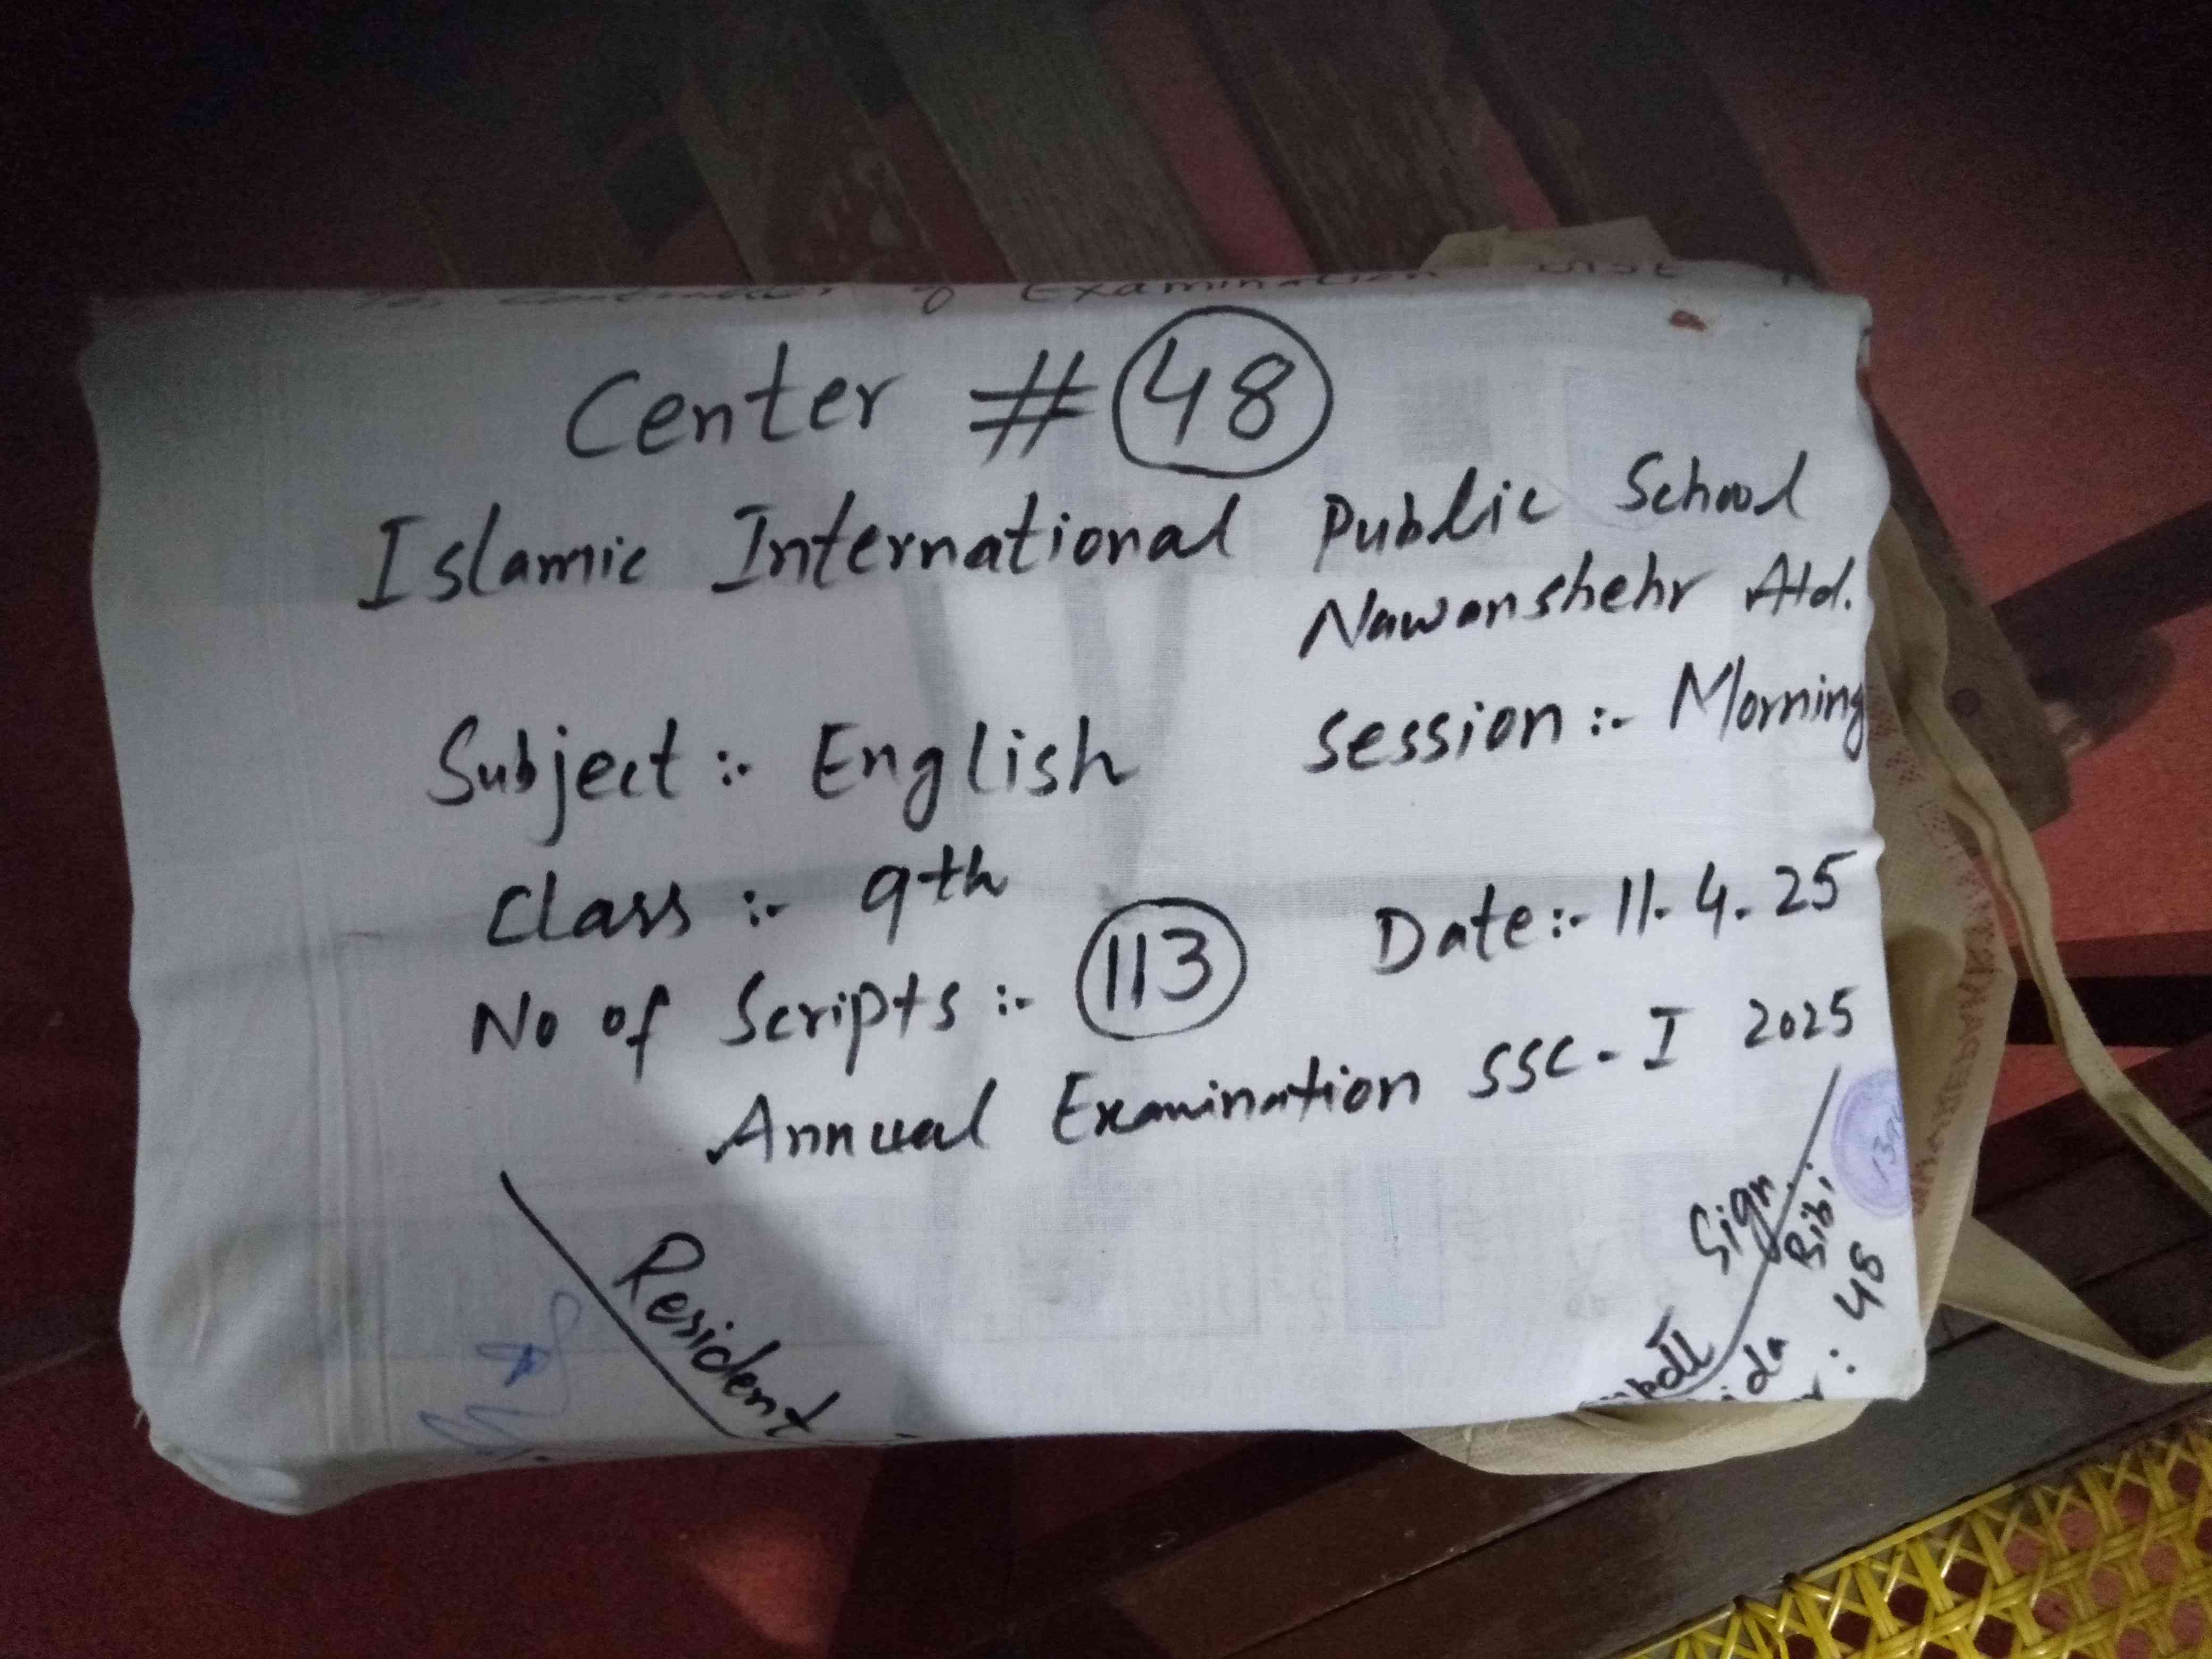 of Examination BISE
Center # 48
Islamic International Public School
Nawanshehr Atd.
Subject :- English
session :- Morning
Class :- 9th
Date :- 11.4.25
No of Scripts :- 113
Annual Examination SSC-I 2025
Resident
Sign.
Bibi
: 48